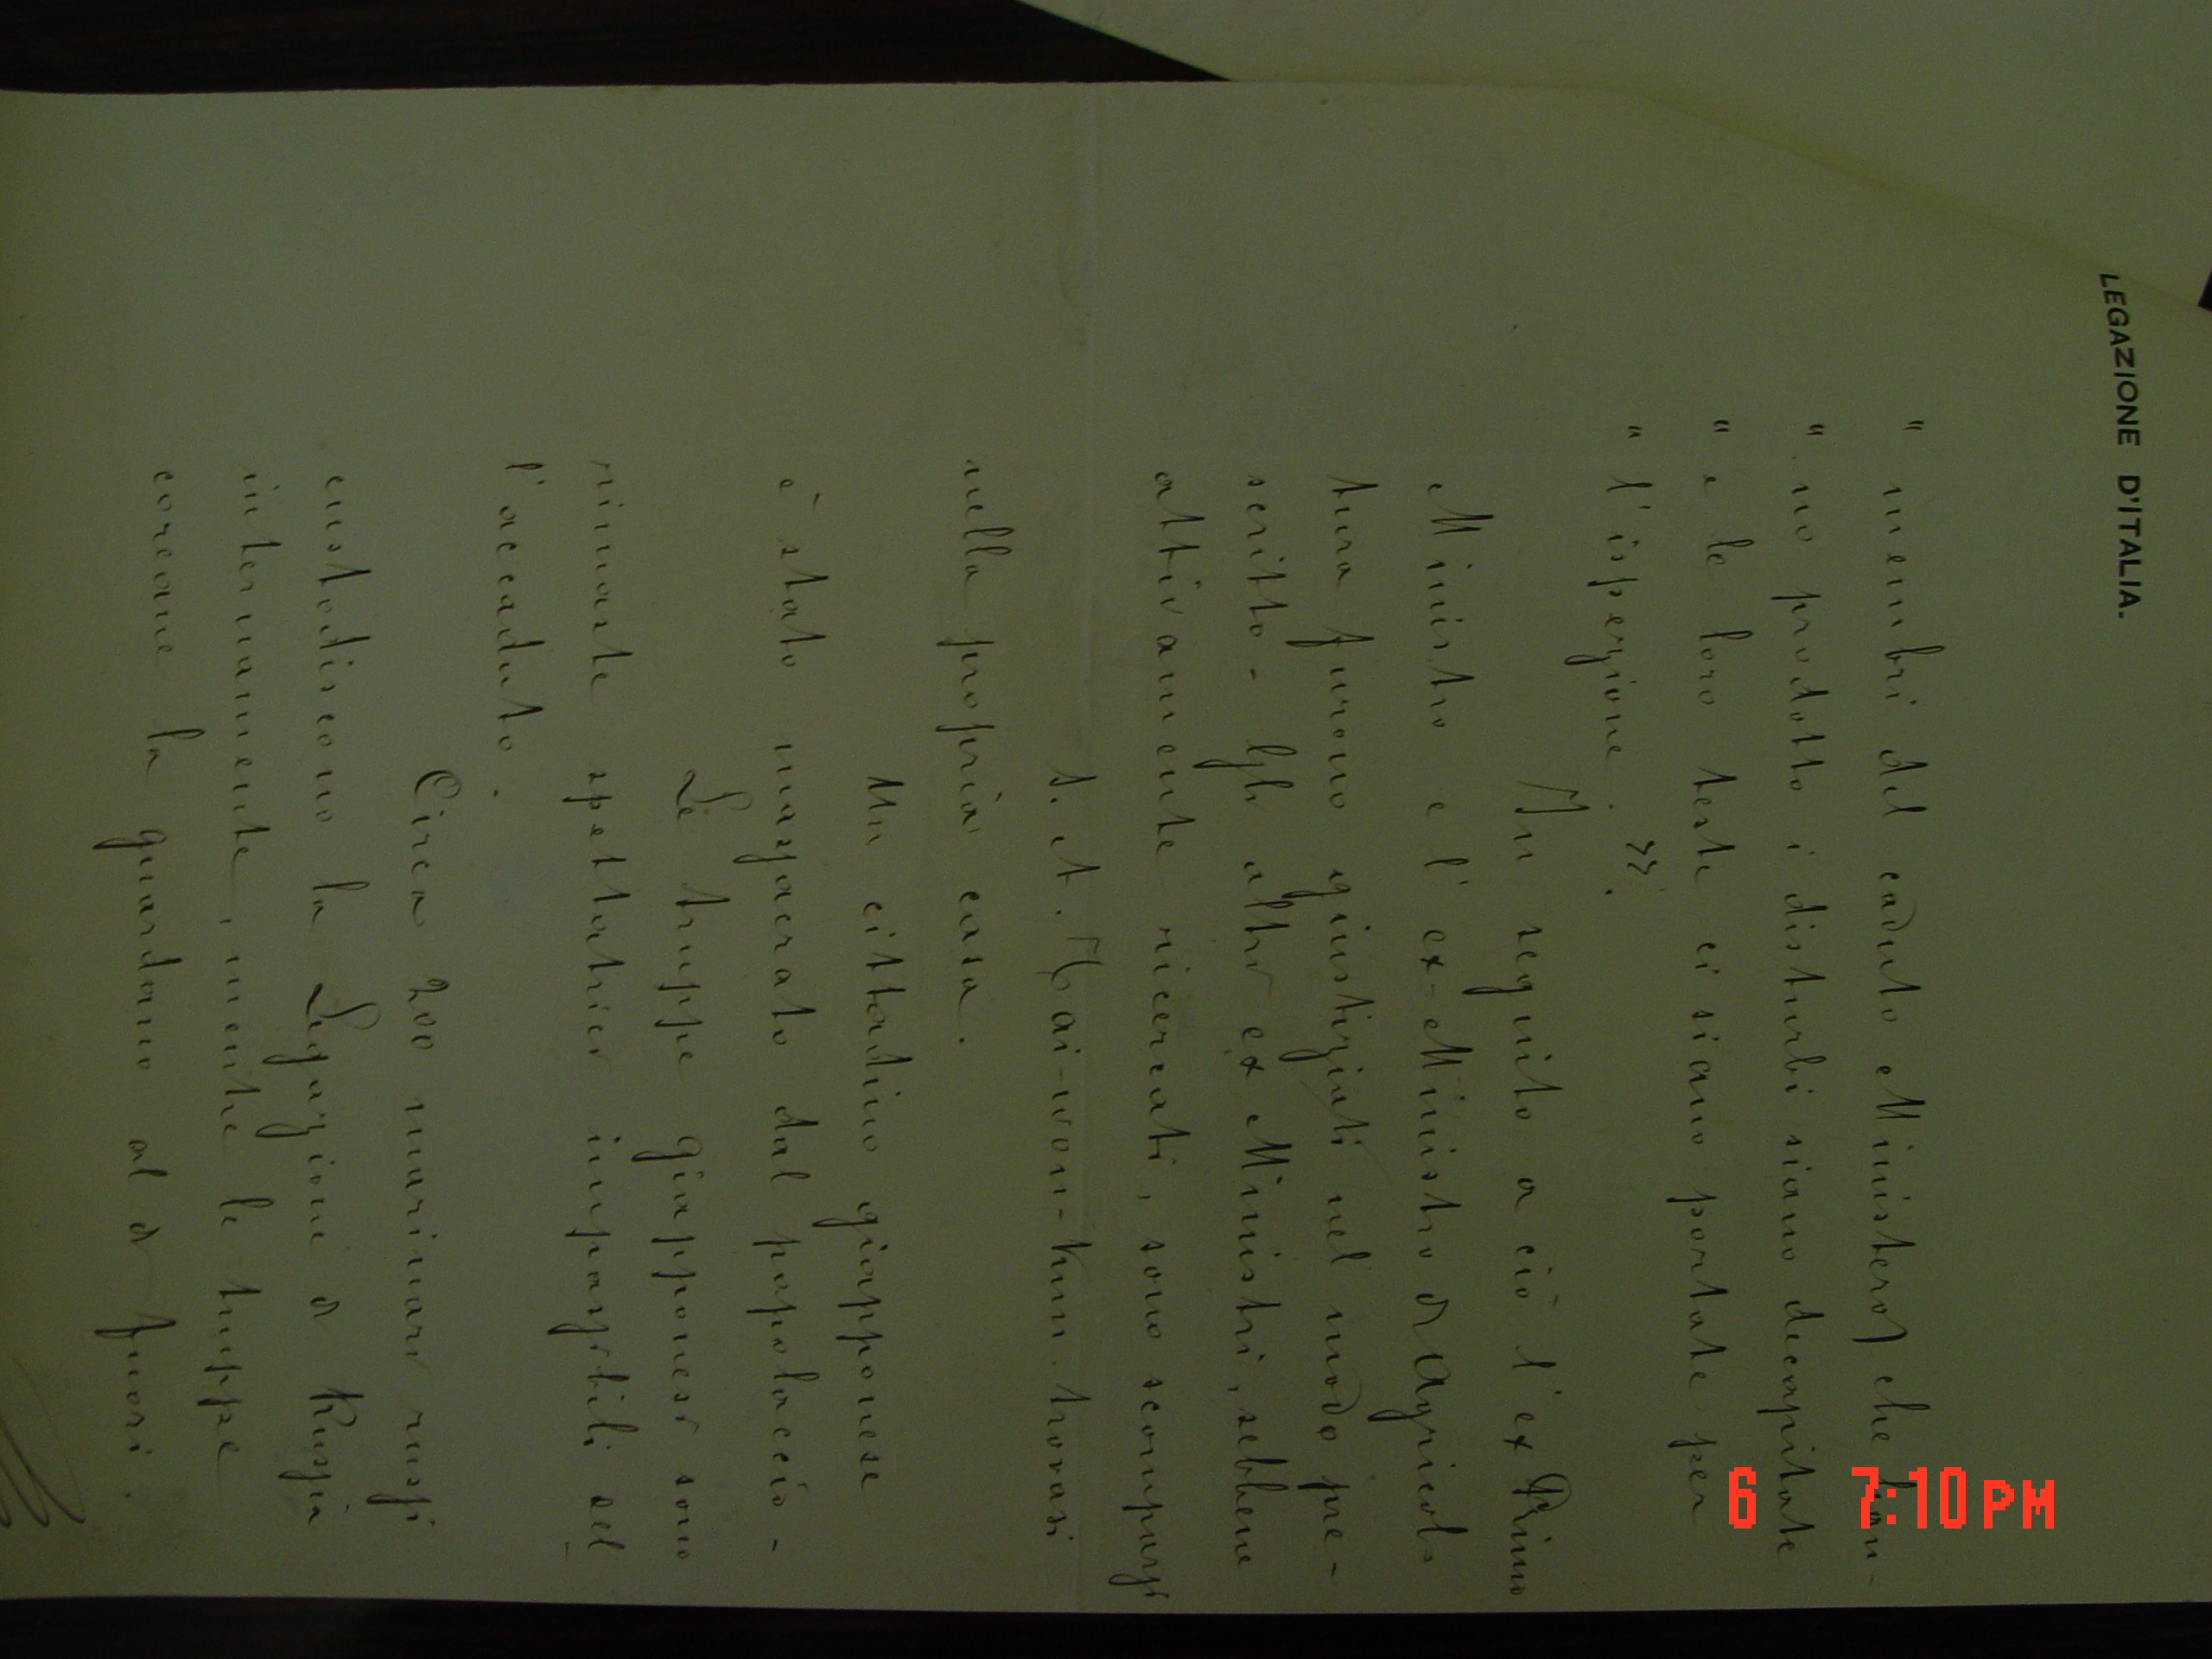 LEGAZIONE D'ITALIA.
" membri del caduto Ministero che han-
" no prodotto i disturbi siano decapitate
" e le loro teste ci siano portate per
" l'ispezione.".
In seguito a ciò l'ex Primo
Ministro e l'ex-Ministro d'Agricol-
tura furono giustiziati nel modo pre-
scritto - Gli altri ex Ministri, sebbene
attivamente ricercati, sono scomparsi
S. A. Tai-won-kun trovasi
nella propria casa.
Un cittadino giapponese
è stato massacrato dal popolaccio -
Le truppe giapponesi sono
rimaste spettatrici impassibili del-
l'accaduto.
Circa 200 marinari russi
custodiscono la Legazione di Russia
internamente, mentre le truppe
coreane la guardano al di fuori.
6 7:10PM